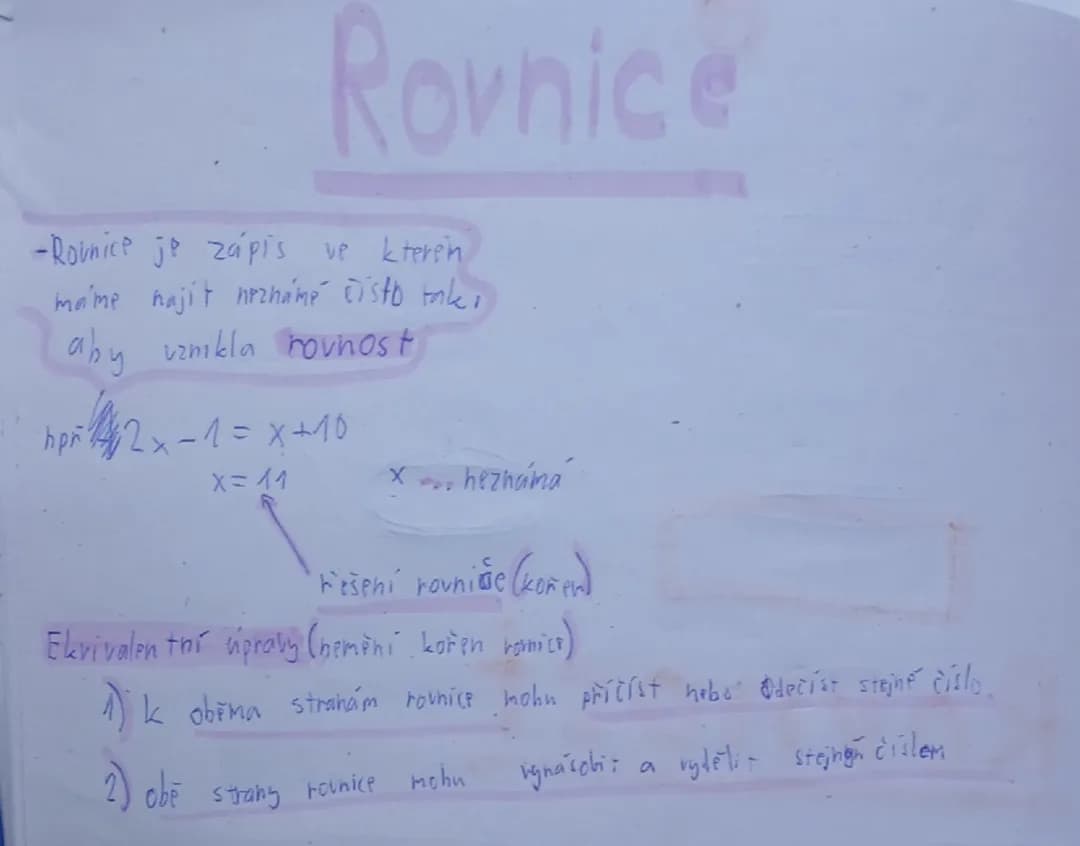 Rovnice
-Rovnice je zápis ve kterém
máme najít neznámé číslo tak,
aby vznikla rovnost
npř 2x-1= x+10
x= 11 x ... neznámá
řešení rovnice (kořen)
Ekvivalentní úpravy (nemění kořen rovnice)
1) k oběma stranám rovnice mohu příčíst nebo odečíst stejné číslo.
2) obě strany rovnice mohu vynásobit a vydělit stejným číslem